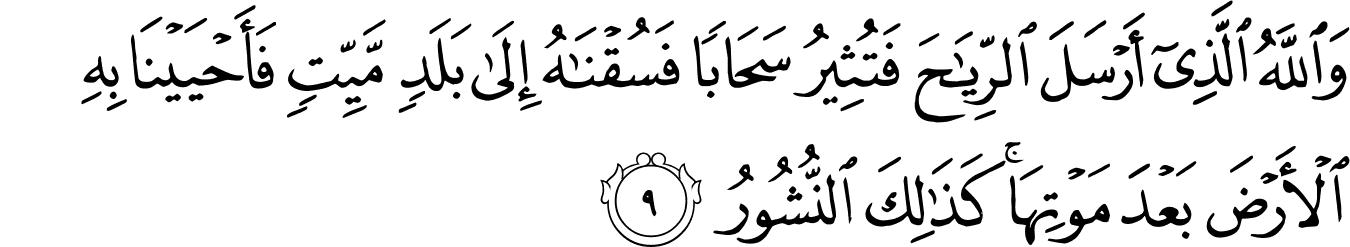 وَٱللَّهُ ٱلَّذِىٓ أَرْسَلَ ٱلرِّيَـٰحَ فَتُثِيرُ سَحَابًا فَسُقْنَـٰهُ إِلَىٰ بَلَدٍ مَّيِّتٍ فَأَحْيَيْنَا بِهِ
ٱلْأَرْضَ بَعْدَ مَوْتِهَا ۚ كَذَٰلِكَ ٱلنُّشُورُ ٩